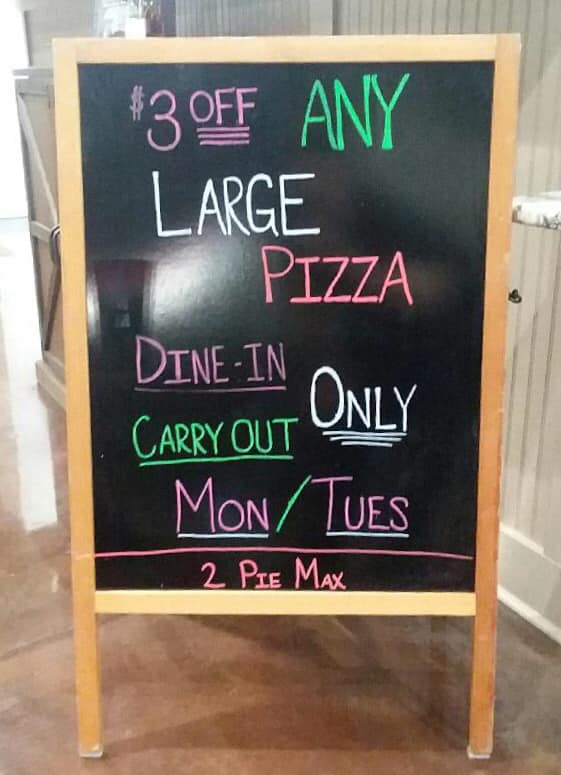 $3 OFF ANY
LARGE
PIZZA
DINE-IN
CARRY OUT ONLY
MON/TUES
2 PIE MAX